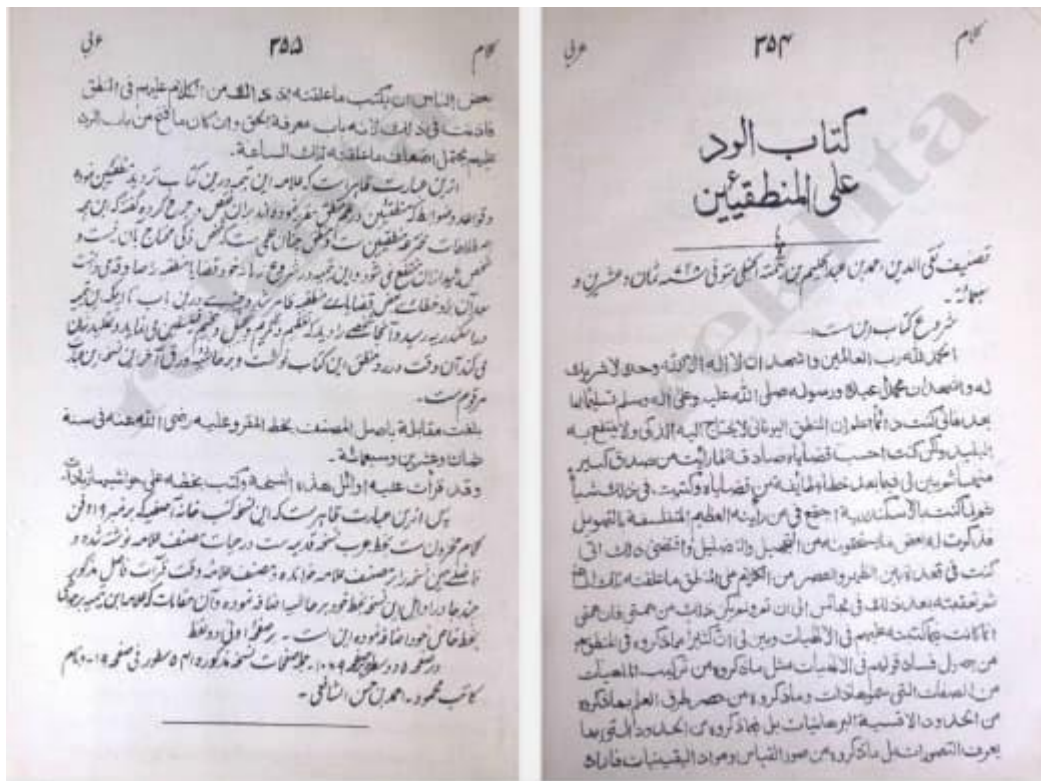 کلام ۳۵۴ عربی
کتاب الرد
علی المنطقیین
تصنیف تقی الدین احمد بن عبد الحلیم بن تیمیة الحنبلی متوفی ۷۲۸ سنه ثمان و عشرین و
سبعمائة۔
شروع کتاب این است۔
الحمد لله رب العالمین واشهد ان لا اله الا الله وحده لا شریك
له واشهد ان محمدا عبده ورسوله صلی الله علیه وعلی اله وسلم تسلیما اما
بعد فانی کنت دائما اعلم ان المنطق الیونانی لا یحتاج الیه الذکی ولا ینتفع به
البلید ولکن کنت احسب قضایاه صادقة لما رایت من صدق کثیر
منها ثم تبین لی فیما بعد خطأ طائفة من قضایاه وکتبت فی ذلك شیأ
ثم لما کنت بالاسکندریة اجتمع بی من رأیته یعظم المتفلسفة بالتهویل
فذکرت له بعض ما یستحقونه من التجهیل والتضلیل واقتضی ذلك انی
کنت فی قعدة بین الظهر والعصر من الکلام علی المنطق ما علقته تلك الساعة
ثم تعقبته بعد ذلك فی مجالس الی ان تم ولم یکن ذلك من همتی فان همتی
انما کانت فیما کتبته علیهم فی الالهیات وتبین لی ان کثیرا مما ذکروه فی المنطق هو
من اصول فساد قولهم فی الالهیات مثل ما ذکروه من ترکیب الماهیات
من الصفات التی سموها ذاتیات وما ذکروه من حصر طرق العلم بما ذکروه
من الحدود والاقیسة البرهانیات بل فیما ذکروه من الحدود التی بها
یعرف التصورات بل ما ذکروه من صور القیاس ومواد الیقینیات فاراد
کلام ۳۵۵ عربی
بعض الناس ان یکتب ما علقته اذ ذالك من الکلام علیهم فی المنطق
فاذنت فی ذلك لانه باب معرفة الحق وان کان ما فتح من باب الرد
علیهم یحتمل اضعاف ما علقته تلك الساعة۔
ازین عبارت ظاهر است که علامه ابن تیمیه درین کتاب تردید منطقیین نموده
و قواعد و ضوابط که منطقیین در علم منطق مقرر نموده اند بران نقض و جرح کرده گفته که این همه
مخترعه منطقیین است و منطق چنان علمی ست که شخص ذکی محتاج بآن نیست و
شخص بلید ازان منتفع نمی شود و ابن تیمیه در شروع زمانه خود قضایا منطقیه را صادق می دانست
بعد آن او خطائے بعض قضایائے منطقیه ظاهر شد و چیزے درین باب تا اینکه ابن تیمیه
در اسکندریه رسید و آنجا شخصے را دید که تعظیم و تکریم
می کند آن وقت در رد منطق این کتاب نوشت و بر حاشیه ورق آخر این نسخه این عبارت
مرقوم ست۔
بلغت مقابلة باصل المصنف بخط المقرو علیه رضی الله عنه فی سنة
ثمان وعشرین وسبعمائة۔
وقد قرأت علیه اوائل هذه النسخة وکتب بخطه علی حواشیها زیادات
پس ازین عبارت ظاهر ست که این نسخه کتب خانه آصفیه که بر نمبر ۲۱۹ فن
کلام مخزون ست بخط عرب نسخه قدیمه ست در حیات مصنف علامه نوشته شده و
فاضلے همین نسخه را بر مصنف علامه خوانده و مصنف علامه وقت قرأت فاضل مذکور
چند جا در اوائل این نسخه بخط خود بر حاشیه اضافه نموده و آن مقامات که علامه ابن تیمیه بر حواشی
بخط خاص خود اضافه نموده این است۔ بر صفحه اولی دو لفظ
در صفحه ۵ دو سطر صفحات نسخه مذکوره ۵۴۱ سطور فی صفحه ۱۹۔ و نام
کاتب محمود۔ احمد بن حسن الشافعی۔
rekhta
rekhta